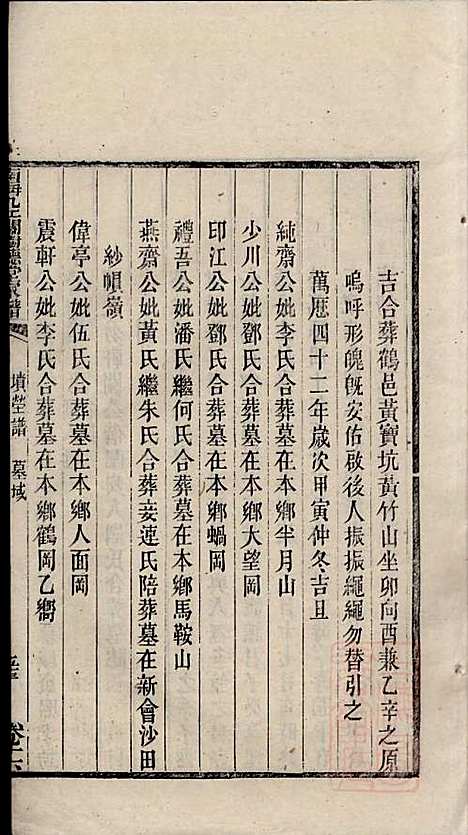 吉合葬鶴邑黃寶坑黃竹山坐卯向酉兼乙辛之原
嗚呼形魄旣安佑啟後人振振繩繩勿替引之
萬歷四十二年歲次甲寅仲冬吉旦
純齋公妣李氏合葬墓在本鄉半月山
少川公妣鄧氏合葬墓在本鄉大望岡
印江公妣鄧氏合葬墓在本鄉蝸岡
禮吾公妣潘氏繼何氏合葬墓在本鄉馬鞍山
燕齋公妣黃氏繼朱氏合葬妾連氏陪葬墓在新會沙田
紗帽嶺
偉亭公妣伍氏合葬墓在本鄉人面岡
震軒公妣李氏合葬墓在本鄉鶴岡乙嚮
墳塋譜 墓域